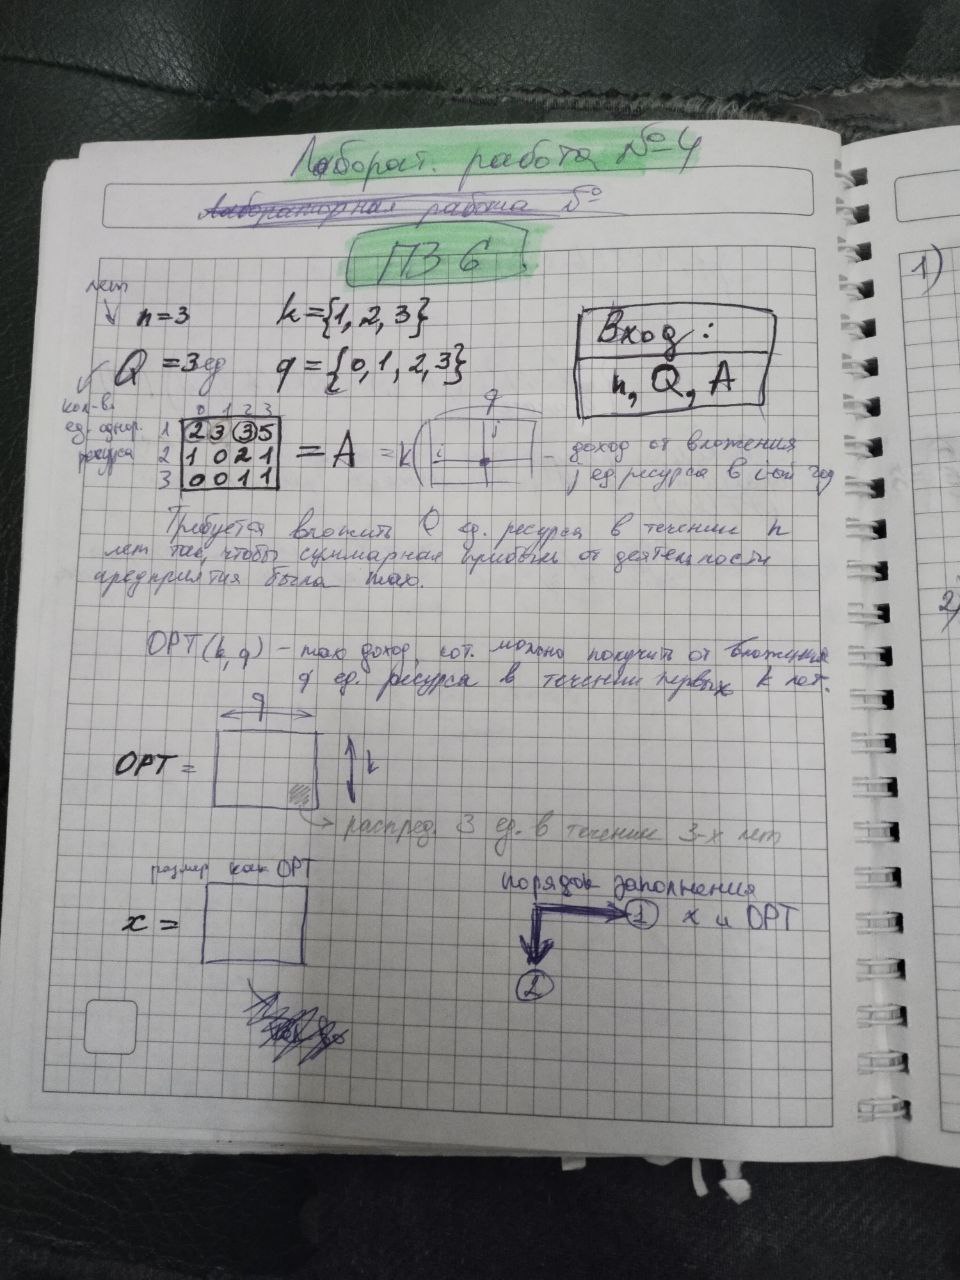 Лаборат. работа № 4
Лабораторная работа №
ПЗ 6.
лет
n=3 k={1, 2, 3}
Вход:
Q = 3 ед q = {0, 1, 2, 3}
n, Q, A
кол-во
ед. однор.
ресурса
0 1 2 3
1 2 3 3 5
2 1 0 2 1
3 0 0 1 1
= A = k
q
j
i
- доход от вложения
j ед ресурса в i-ый год
Требуется вложить Q ед. ресурса в течении n
лет так, чтобы суммарная прибыль от деятельности
предприятия была max.
OPT(k, q) - max доход, кот. можно получить от вложения
q ед. ресурса в течении первых k лет.
q
OPT =
k
распред. 3 ед. в течении 3-х лет
размер как OPT
x =
порядок заполнения
1 x и OPT
2
1)
2)